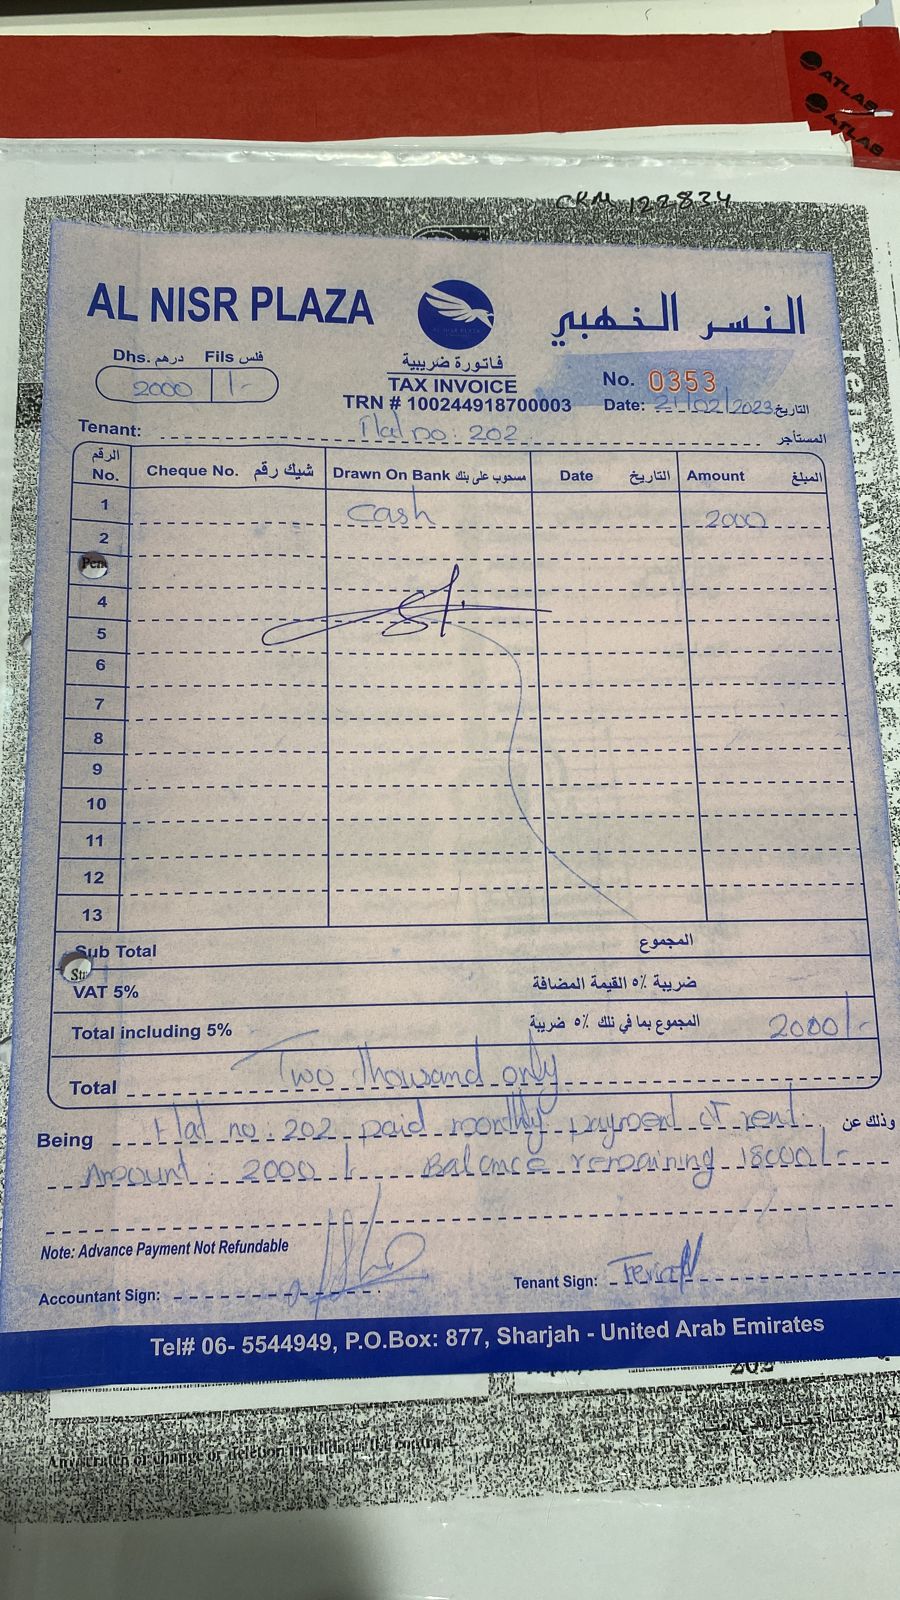 ATLAB
ATLAB
CKM 122834
AL NISR PLAZA
النسر الذهبي
AL NISR PLAZA
Dhs. درهم Fils فلس
2000 /-
فاتورة ضريبية
TAX INVOICE
TRN # 100244918700003
No. 0353
Date: 21/02/2023 التاريخ
Tenant: Flat no: 202 المستأجر
الرقم No. Cheque No. شيك رقم Drawn On Bank مسحوب على بنك Date التاريخ Amount المبلغ
1 Cash 2000
2
Pen
4
5
6
7
8
9
10
11
12
13
Sub Total المجموع
VAT 5% ضريبة ٥٪ القيمة المضافة
Total including 5% المجموع بما في ذلك ٥٪ ضريبة 2000/-
Total Two thousand only
Being Flat no: 202 paid monthly payment of rent. وذلك عن
Amount : 2000/- Balance remaining 18000/-
Note: Advance Payment Not Refundable
Accountant Sign:
Tenant Sign:
Tel# 06- 5544949, P.O.Box: 877, Sharjah - United Arab Emirates
202
Any scratch or change or deletion invalidates the contract